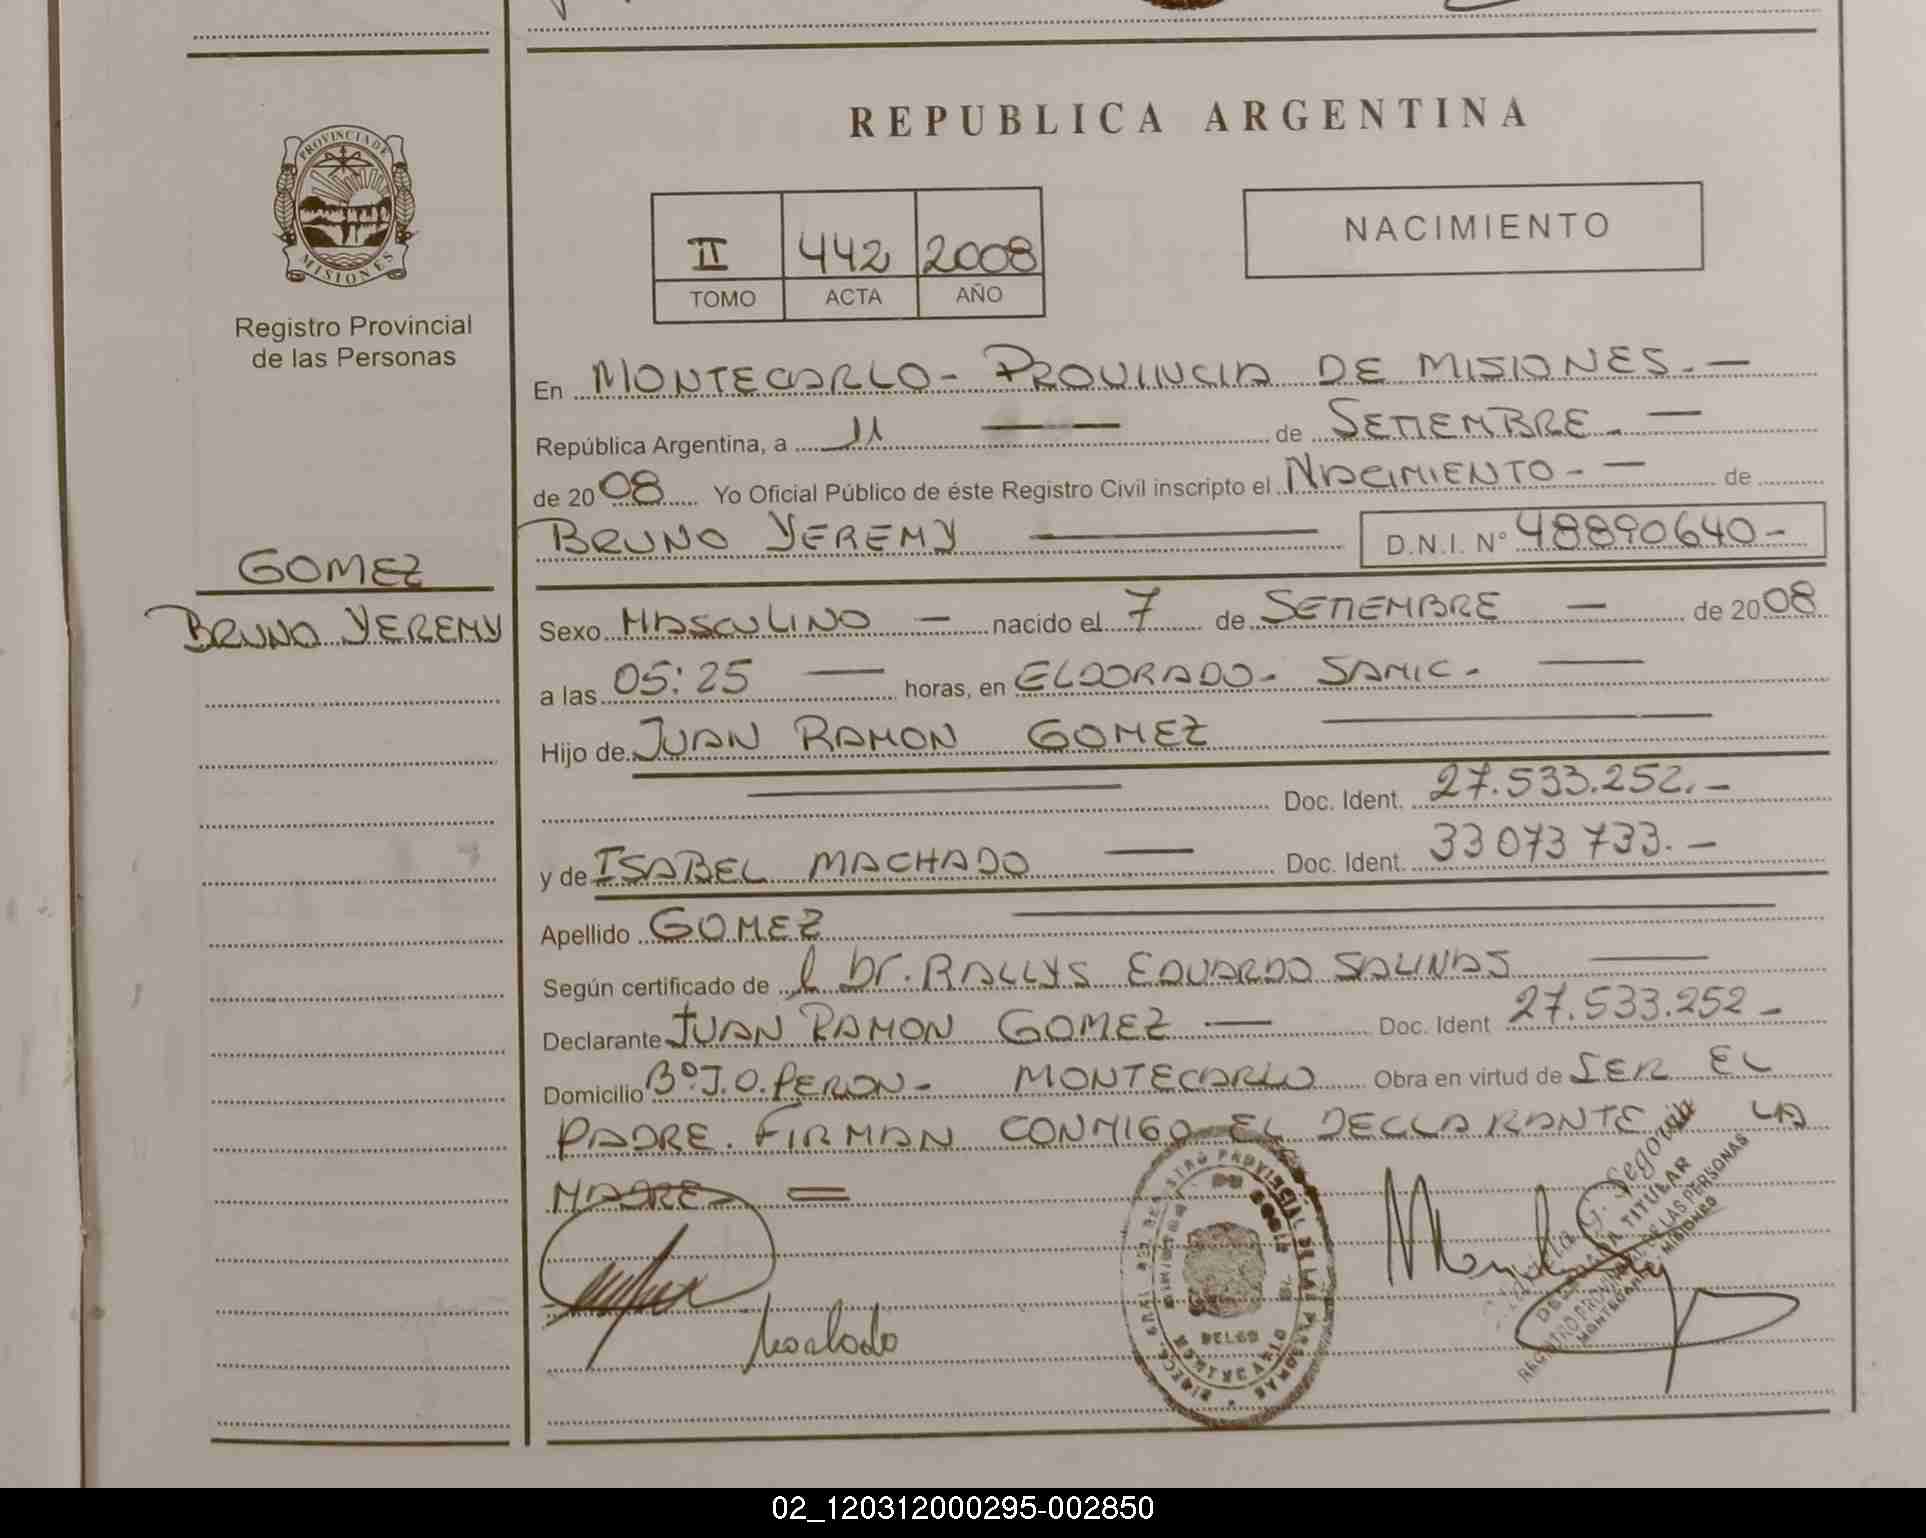 REPUBLICA ARGENTINA
PROVINCIA DE
MISIONES
Registro Provincial
de las Personas
II 442 2008
TOMO ACTA AÑO
NACIMIENTO
En MONTECARLO - PROVINCIA DE MISIONES. —
República Argentina, a 11 — de SETIEMBRE. —
de 2008 Yo Oficial Público de éste Registro Civil inscripto el NACIMIENTO - — de
BRUNO YEREMY — D.N.I. N° 48890640-
GOMEZ
BRUNO YEREMY
Sexo MASCULINO — nacido el 7 de SETIEMBRE — de 2008
a las 05:25 — horas, en ELDORADO - SAMIC - —
Hijo de JUAN RAMON GOMEZ —
— Doc. Ident. 27.533.252. -
y de ISABEL MACHADO — Doc. Ident. 33 073 733. -
Apellido GOMEZ —
Según certificado de l Dr. RALLYS EDUARDO SALINAS —
Declarante JUAN RAMON GOMEZ — Doc. Ident 27.533.252 -
Domicilio B° J.D. PERON - MONTECARLO Obra en virtud de SER EL
PADRE. FIRMAN CONMIGO EL DECLARANTE LA
MADRE =
Machado
Segovia
TITULAR
REGISTRO PROVINCIAL DE LAS PERSONAS
MISIONES
02_120312000295-002850